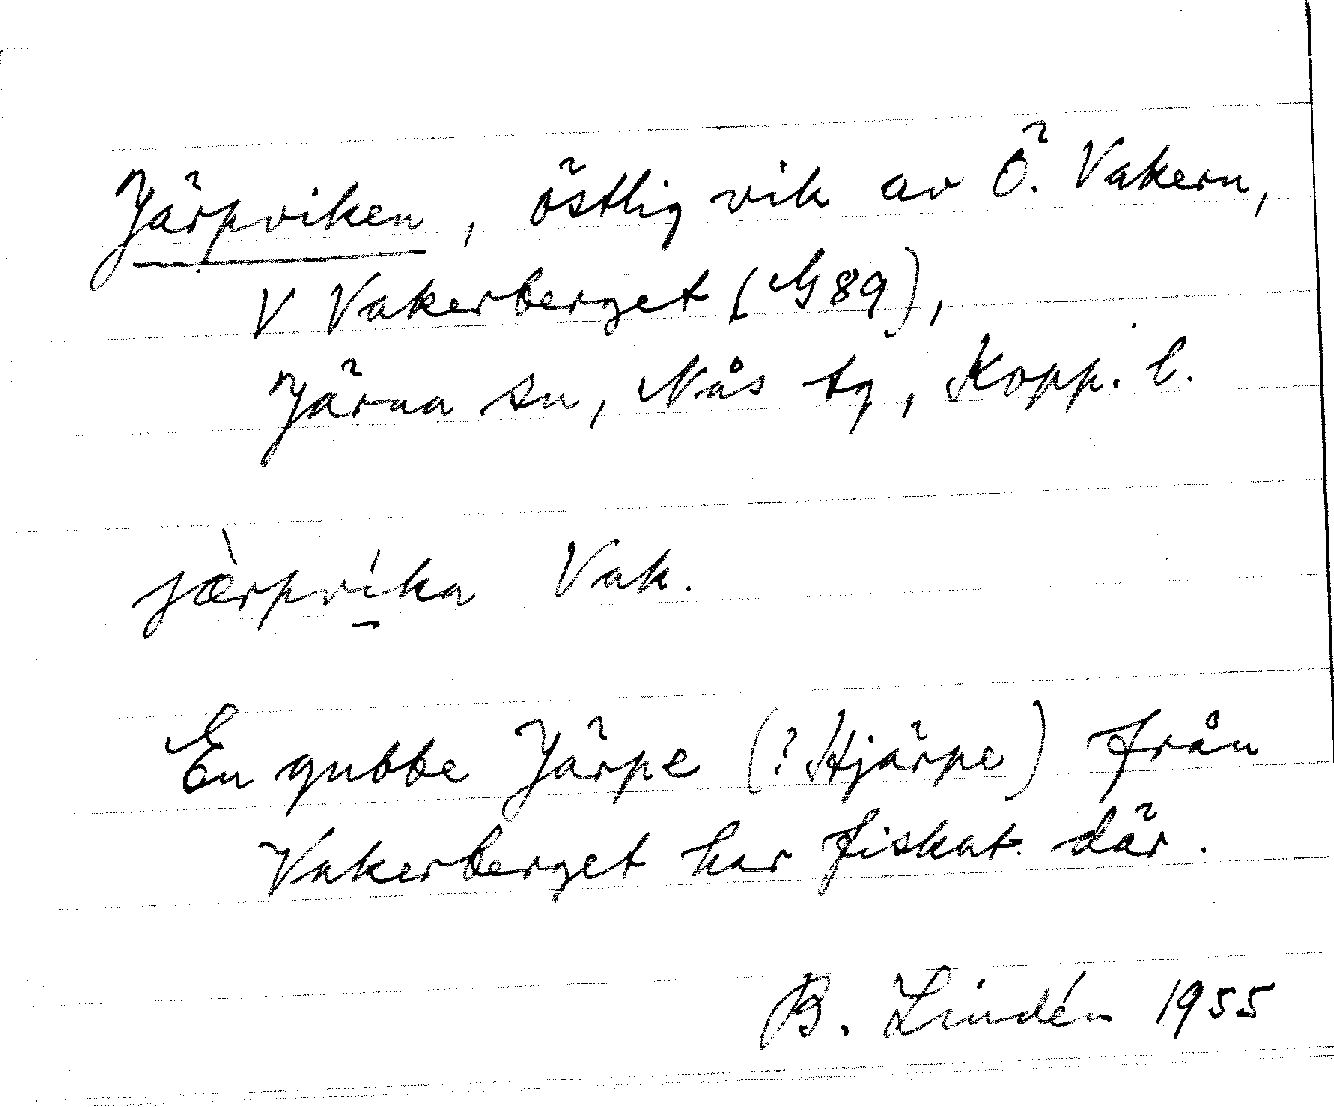 Järpviken, östlig vik av Ö. Vakern,
V Vakerberget (G89),
Järna sn, Nås tg, Kopp. l.
jæ̀rpví̱ka Vak.
En gubbe Järpe (? Hjärpe) från
Vakerberget har fiskat där.
B. Lindén 1955